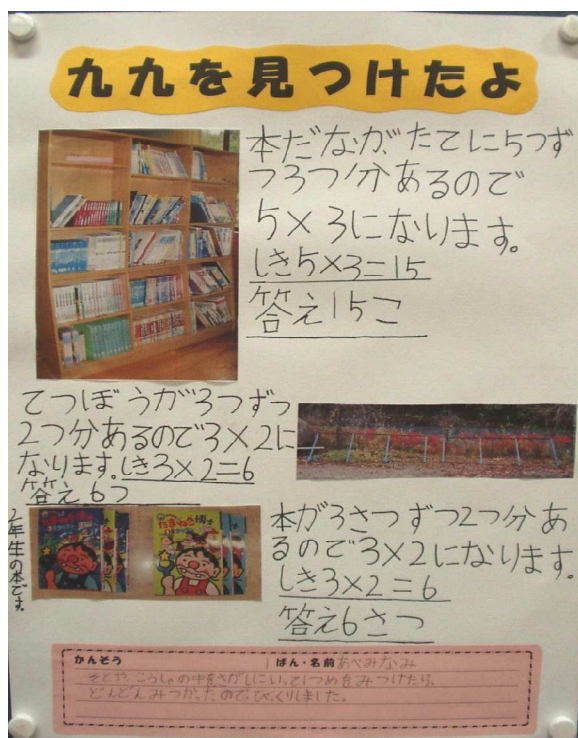 九九を見つけたよ
本だなが、たてに5つず
つ3つ分あるので
5×3になります。
しき5×3=15
答え15こ
てつぼうが3つずつ
2つ分あるので3×2に
なります。しき3×2=6
答え6つ
2年生の本です。
たまねぎ博士
たまねぎ博士
本が3さつずつ2つ分あ
るので3×2になります。
しき3×2=6
答え6さつ
かんそう
1ぱん・名前 あべみなみ
そとや、こうしゃの中をさがしにいって1つめをみつけたら、
どんどんみつかったので、びっくりしました。